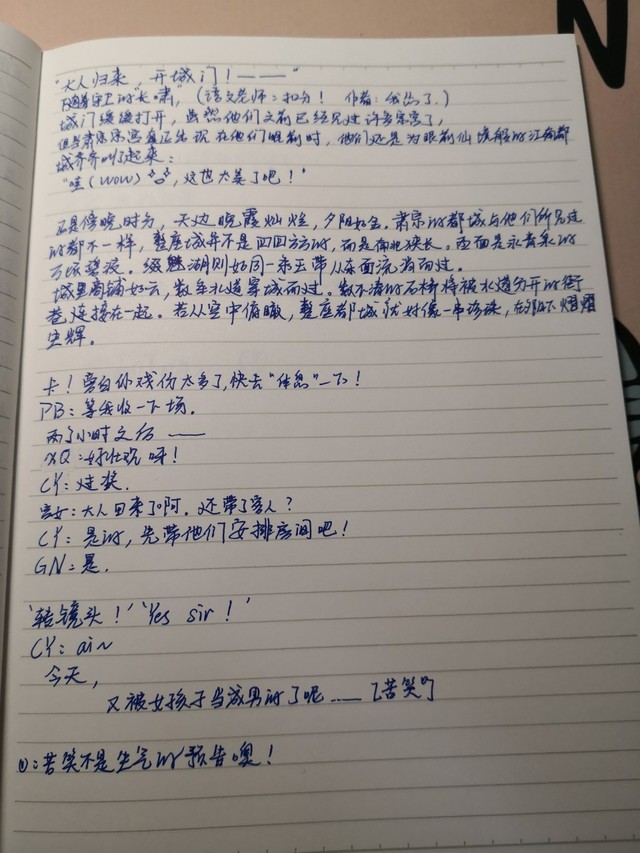 N
"大人归来，开城门！——"
随着守卫的"长啸"，（语文老师：扣分！ 作者：我怂了.）
城门缓缓打开，虽然他们之前已经见过许多宗宫了，
但当肃宗宗宫真正出现在他们眼前时，他们还是为眼前仙境般的江南都
城齐齐叫了起来：
"哇（wow），这也太美了吧！"
正是傍晚时分，天边晚霞灿烂，夕阳如金。肃宗的都城与他们所见过
的都不一样，整座城并不是四四方方的，而是南北狭长。西面是永青泉的
万顷碧波。缀魅湖则如同一条玉带从东面流淌而过。
城里商铺如云，数条水道穿城而过。数不清的石桥将被水道分开的街
巷连接在一起。若从空中俯瞰，整座都城就好像一串珍珠，在阳光下熠熠
生辉。
卡！旁白你戏份太多了，快去"休息"一下！
PB：等我收一下场.
两个小时之后 ——
XQ：好壮观呀！
CY：过奖.
宫女：大人回来了啊. 还带了客人？
CY：是的，先带他们安排房间吧！
GN：是.
'转镜头！''Yes sir！'
CY：ain
今天，
又被女孩子当成男的了呢……『苦笑』
：苦笑不是生气的预告噢！